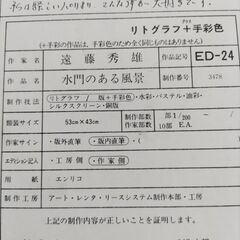 リトグラフ+手彩色
プラス
(+手彩色の作品は、手彩色のため全く同じものはありません)
作家名 遠藤秀雄 作品記号 ED-24
作品名 水門のある風景 制作番号 3478
制作技法 リトグラフ/版+手彩色・水彩・パステル・油彩・
シルクスクリーン・銅版
額装サイズ 53cm×43cm 制作部数 部1/200 ~
EA 10部 E.A.
サイン ・版内直筆・版外直筆
エディション記入 ・工房側 ・作家側
用紙 エンリコ
制作工房 アート・レンタ・リースシステム制作本部・工房
上記の制作内容が正しいことを証明します。